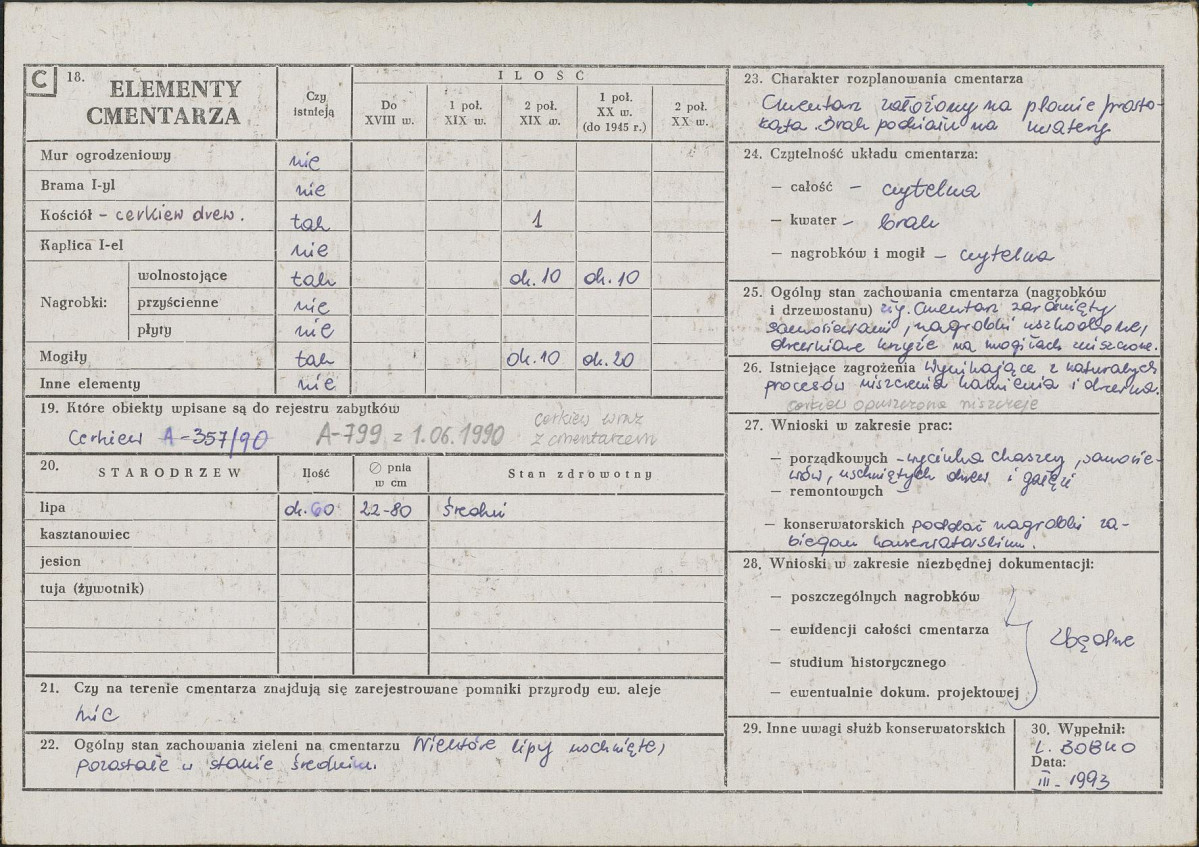 C 18. ELEMENTY CMENTARZA
Czy istnieją
ILOŚĆ
Do XVIII w.
1 poł. XIX w.
2 poł. XIX w.
1 poł. XX w. (do 1945 r.)
2 poł. XX w.
Mur ogrodzeniowy nie
Brama I-yl nie
Kościół - cerkiew drew. tak 1
Kaplica I-el nie
Nagrobki: wolnostojące tak ok. 10 ok. 10
przyścienne nie
płyty nie
Mogiły tak ok. 10 ok. 20
Inne elementy nie
19. Które obiekty wpisane są do rejestru zabytków
Cerkiew A-357/90 A-799 z 1.06.1990 cerkiew wraz
z cmentarzem
20. STARODRZEW Ilość ∅ pnia w cm Stan zdrowotny
lipa ok. 60 22-80 średni
kasztanowiec
jesion
tuja (żywotnik)
21. Czy na terenie cmentarza znajdują się zarejestrowane pomniki przyrody ew. aleje
nie
22. Ogólny stan zachowania zieleni na cmentarzu Niektóre lipy uschnięte,
pozostałe w stanie średnim.
23. Charakter rozplanowania cmentarza
Cmentarz założony na planie prosto-
kąta. Brak podziału na kwatery
24. Czytelność układu cmentarza:
— całość - czytelna
— kwater - brak
— nagrobków i mogił - czytelna
25. Ogólny stan zachowania cmentarza (nagrobków
i drzewostanu) Cmentarz zarośnięty
samosiewami, nagrobki uszkodzone,
drewniane krzyże na mogiłach zniszczone.
26. Istniejące zagrożenia Wynikające z naturalnych
procesów niszczenia kamienia i drewna.
cerkiew opuszczona niszczeje
27. Wnioski w zakresie prac:
— porządkowych - wycinka chaszczy, samosie-
wów, uschniętych drzew i gałęzi
— remontowych -
— konserwatorskich poddać nagrobki za-
biegom konserwatorskim.
28. Wnioski w zakresie niezbędnej dokumentacji:
— poszczególnych nagrobków
— ewidencji całości cmentarza
zbędne
— studium historycznego
— ewentualnie dokum. projektowej
29. Inne uwagi służb konserwatorskich
30. Wypełnił:
L. BOBKO
Data:
III - 1993